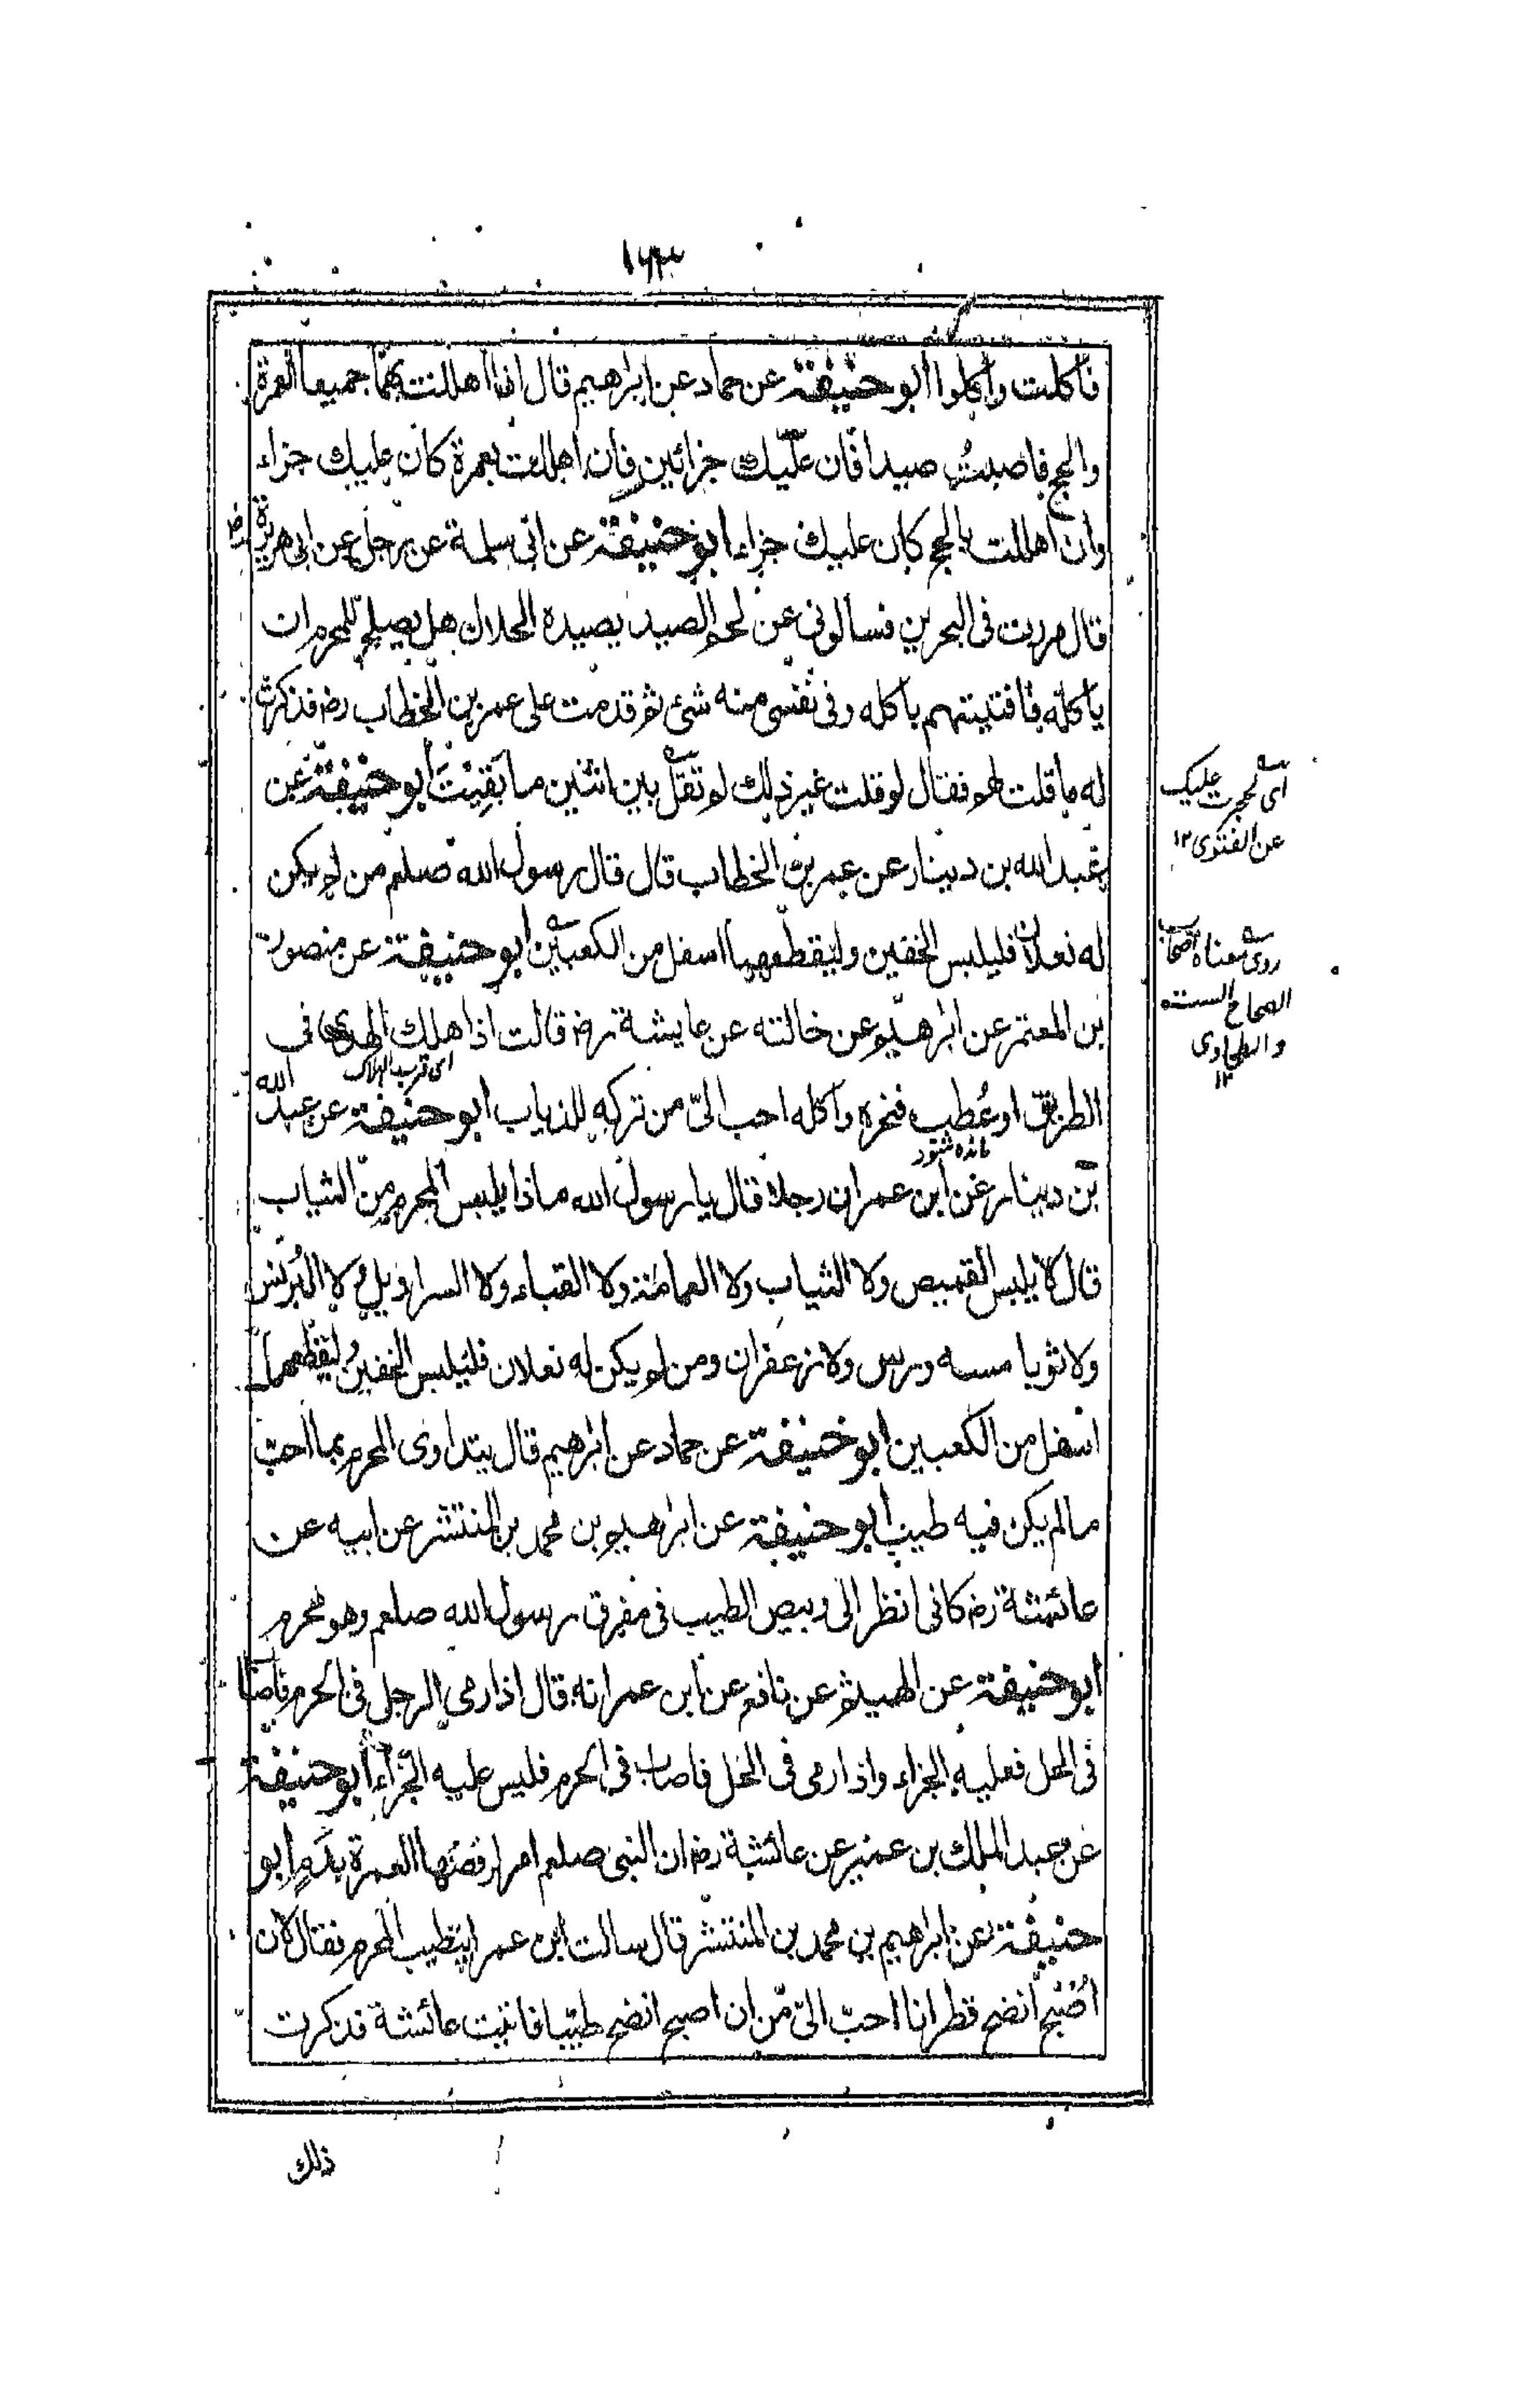 ١٦٣
فأكلت وأكلوا أبو حنيفة عن حماد عن ابراهيم قال اذا اهللت بهما جميعا العمرة
والحج فاصبت صيدا فان عليك جزائين فان اهللت بعمرة كان عليك جزاء
وان اهللت بالحج كان عليك جزاء ابو حنيفة عن ابى سلمة عن رجل عن ابى هريرة رض
قال مررت فى البحرين فسالونى عن لحم الصيد يصيده الحلال هل يصلح للمحرم ان
يأكله فافتيتهم باكله وفى نفسى منه شئ ثم قدمت على عمر بن الخطاب رض فذكرت
له ما قلت لهم فقال لو قلت غير ذلك لم تقل بين اثنين ما بقيت أبو حنيفة عن
عبد الله بن دينار عن عمر بن الخطاب قال قال رسول الله صلعم من لم يكن
له نعلان فليلبس الخفين وليقطعهما اسفل من الكعبين ابو حنيفة عن منصور
بن المعتمر عن ابراهيم عن خالته عن عايشة رض قالت اذا هلك الهدى فى
اى قرب الهلاك
الطريق او عُطب فنحره وأكله احب الىّ من تركه للذياب ابو حنيفة عن عبد الله
مانده شود
بن دينار عن ابن عمر ان رجلا قال يا رسول الله ماذا يلبس المحرم من الثياب
قال لا يلبس القميص ولا الثياب ولا العمامة ولا القباء ولا السراويل ولا البُرنس
ولا ثوبا مسه ورس ولا زعفران ومن لم يكن له نعلان فليلبس الخفين وليقطعهما
اسفل من الكعبين ابو حنيفة عن حماد عن ابراهيم قال يتداوى المحرم بما احب
مالم يكن فيه طيب أبو حنيفة عن ابراهيم بن محمد بن المنتشر عن ابيه عن
عائشة رض كانى انظر الى وبيص الطيب فى مفرق رسول الله صلعم وهو محرم
ابو حنيفة عن الهيثم عن نافع عن ابن عمر انه قال اذا رمى الرجل فى الحرم فاصاب
فى الحل فعليه الجزاء واذا رمى فى الحل فاصاب فى الحرم فليس عليه الجزاء أبو حنيفة
عن عبد الملك بن عمير عن عائشة رض ان النبى صلعم امر لرفضها العمرة بدم ابو
حنيفة عن ابراهيم بن محمد بن المنتشر قال سالت ابن عمر ايتطيب المحرم فقال لان
اصبح أنضح قطرانا احبّ الىّ من ان اصبح انضح طيبا فاتيت عائشة فذكرت
ذلك
اى لحجرت عليك
عن الفتوى ١٢
روى معناه اصحاب
الصحاح الستة
والطحاوى
١٢